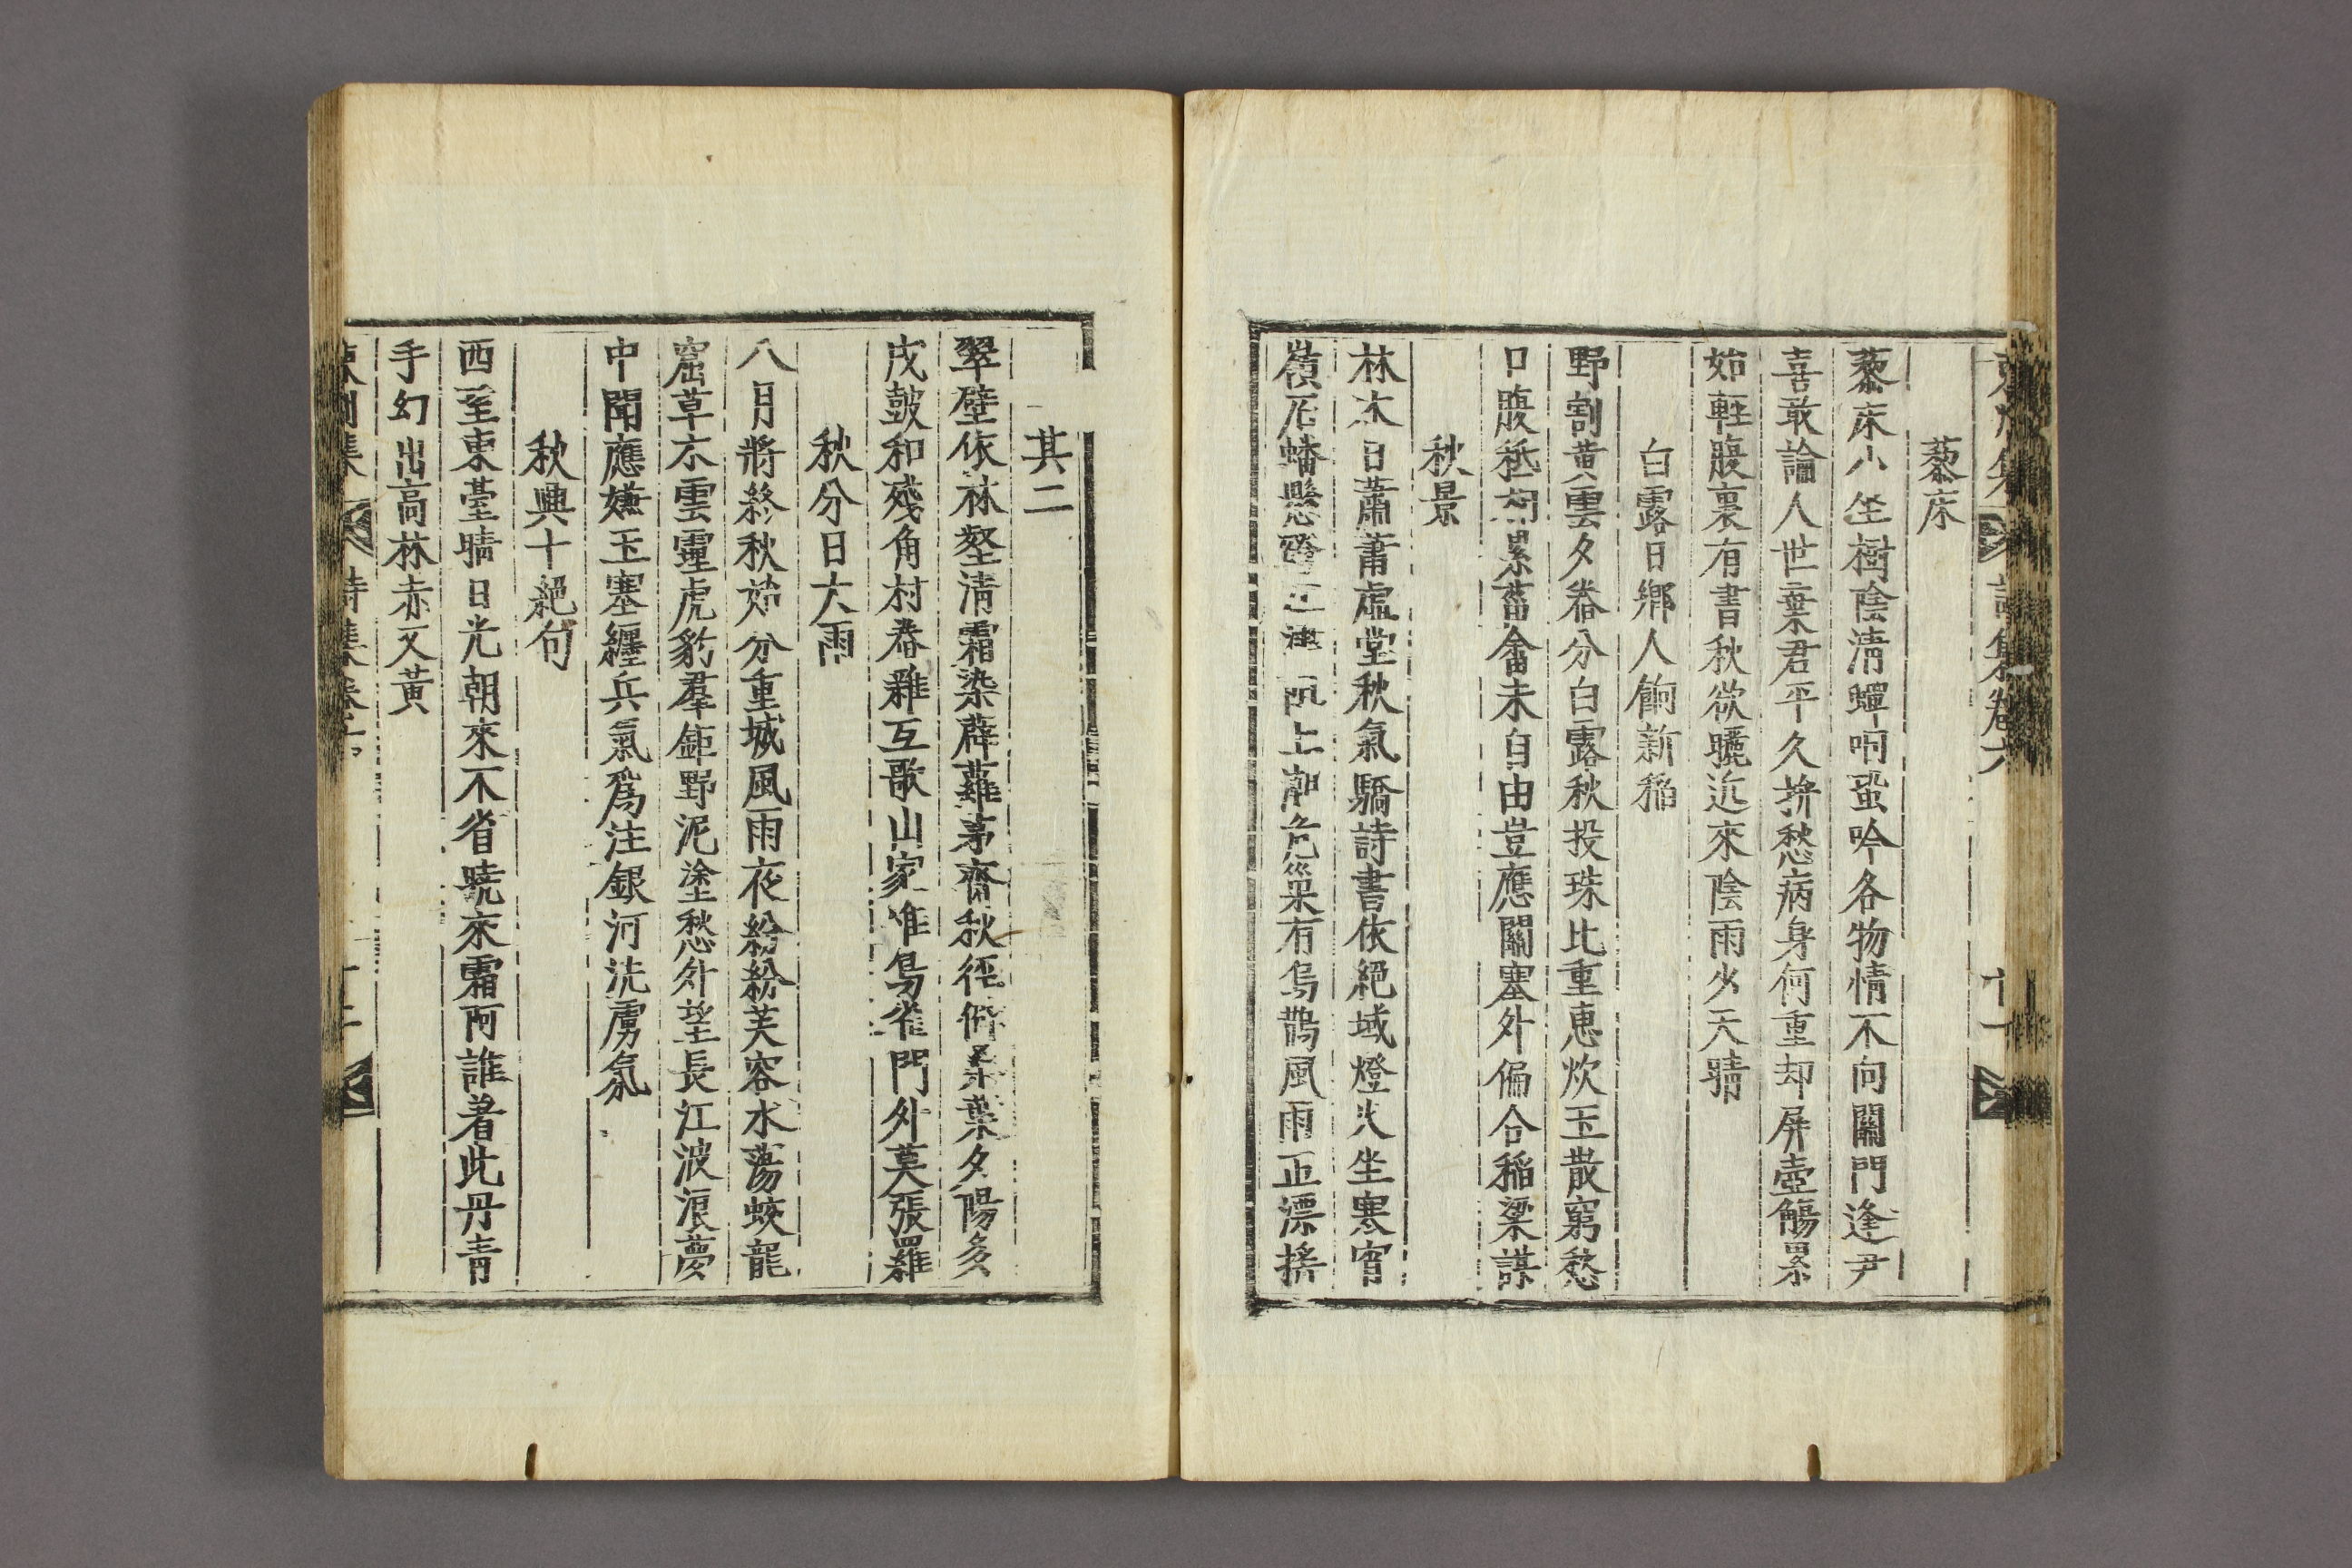 詩集卷六
藜床
藜床小坐樹陰淸蟬咽蛩吟各物情不向關門逢尹
喜敢論人世棄君平久拚愁病身何重却屛壺觴累
始輕腹裏有書秋欲曬近來陰雨少天晴
白露日鄕人餉新稻
野割黃雲夕眷分白露秋投珠比重惠炊玉散窮愁
口腹秪相累菑畬未自由豈應關塞外偏合稻粱謀
秋景
林木日蕭蕭虛堂秋氣驕詩書依絕域燈火坐寒宵
嶺石蟠懸磴江津上危巢有烏鵲風雨正漂搖
其二
翠壁依林壑淸霜染薜蘿茅齋秋徑僻桑葉夕陽多
戍鼓和殘角村舂雜互歌山家唯鳥雀門外莫張羅
秋分日大雨
八月將終秋始分重城風雨夜紛紛芙容水蕩蛟龍
窟草木雲霾虎豹羣鉅野泥塗愁外望長江波浪夢
中聞應嫌玉塞纏兵氣爲注銀河洗虜氛
秋興十絕句
西至東臺晴日光朝來不省曉來霜阿誰着此丹靑
手幻出高林赤又黃
詩集卷